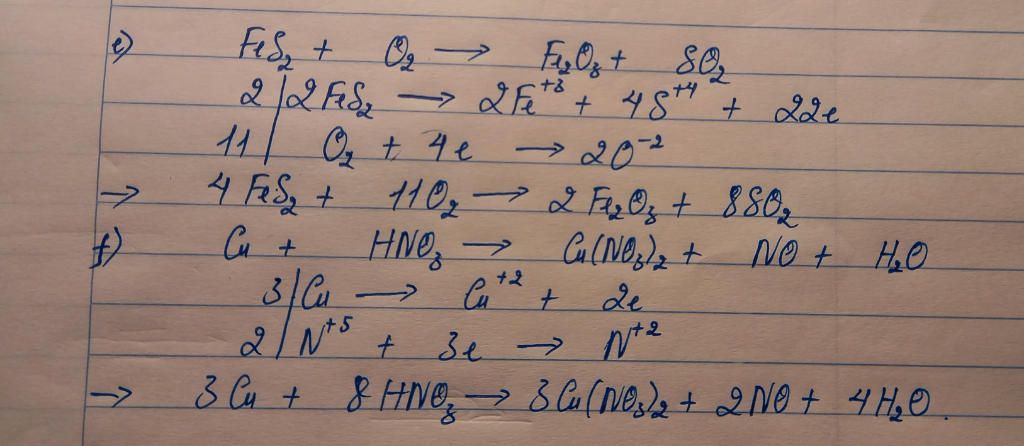 e) FeS₂ + O₂ → Fe₂O₃ + SO₂
2 | 2FeS₂ → 2Fe⁺³ + 4S⁺⁴ + 22e
11 | O₂ + 4e → 2O⁻²
→ 4FeS₂ + 11O₂ → 2Fe₂O₃ + 8SO₂
f) Cu + HNO₃ → Cu(NO₃)₂ + NO + H₂O
3 | Cu → Cu⁺² + 2e
2 | N⁺⁵ + 3e → N⁺²
→ 3Cu + 8HNO₃ → 3Cu(NO₃)₂ + 2NO + 4H₂O.